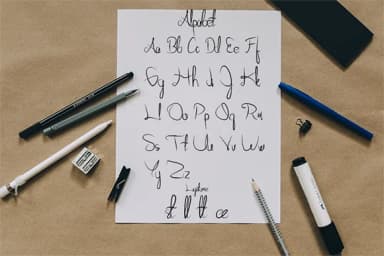 Alphabet
Aa Bb Cc Dd Ee Ff
Gg Hh Ii Jj Kk
Ll Oo Pp Qq Rr
Ss Tt Uu Vv Ww
Yy Zz